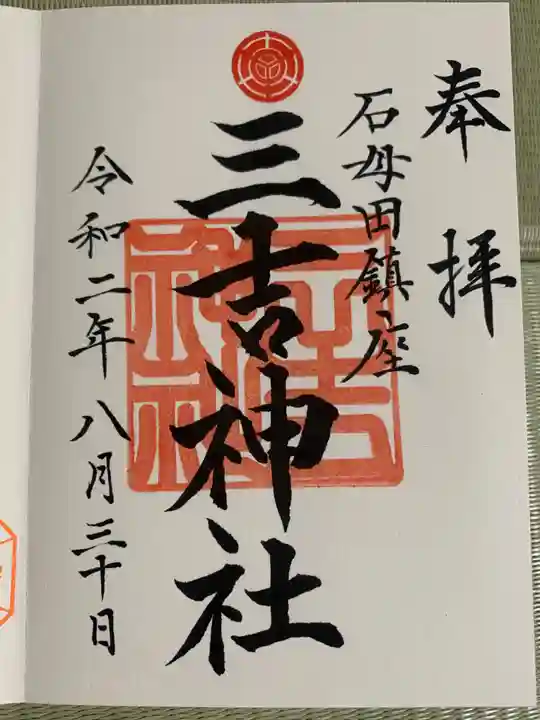 奉拝
石母田鎮座
三吉神社
令和二年八月三十日
三吉神社